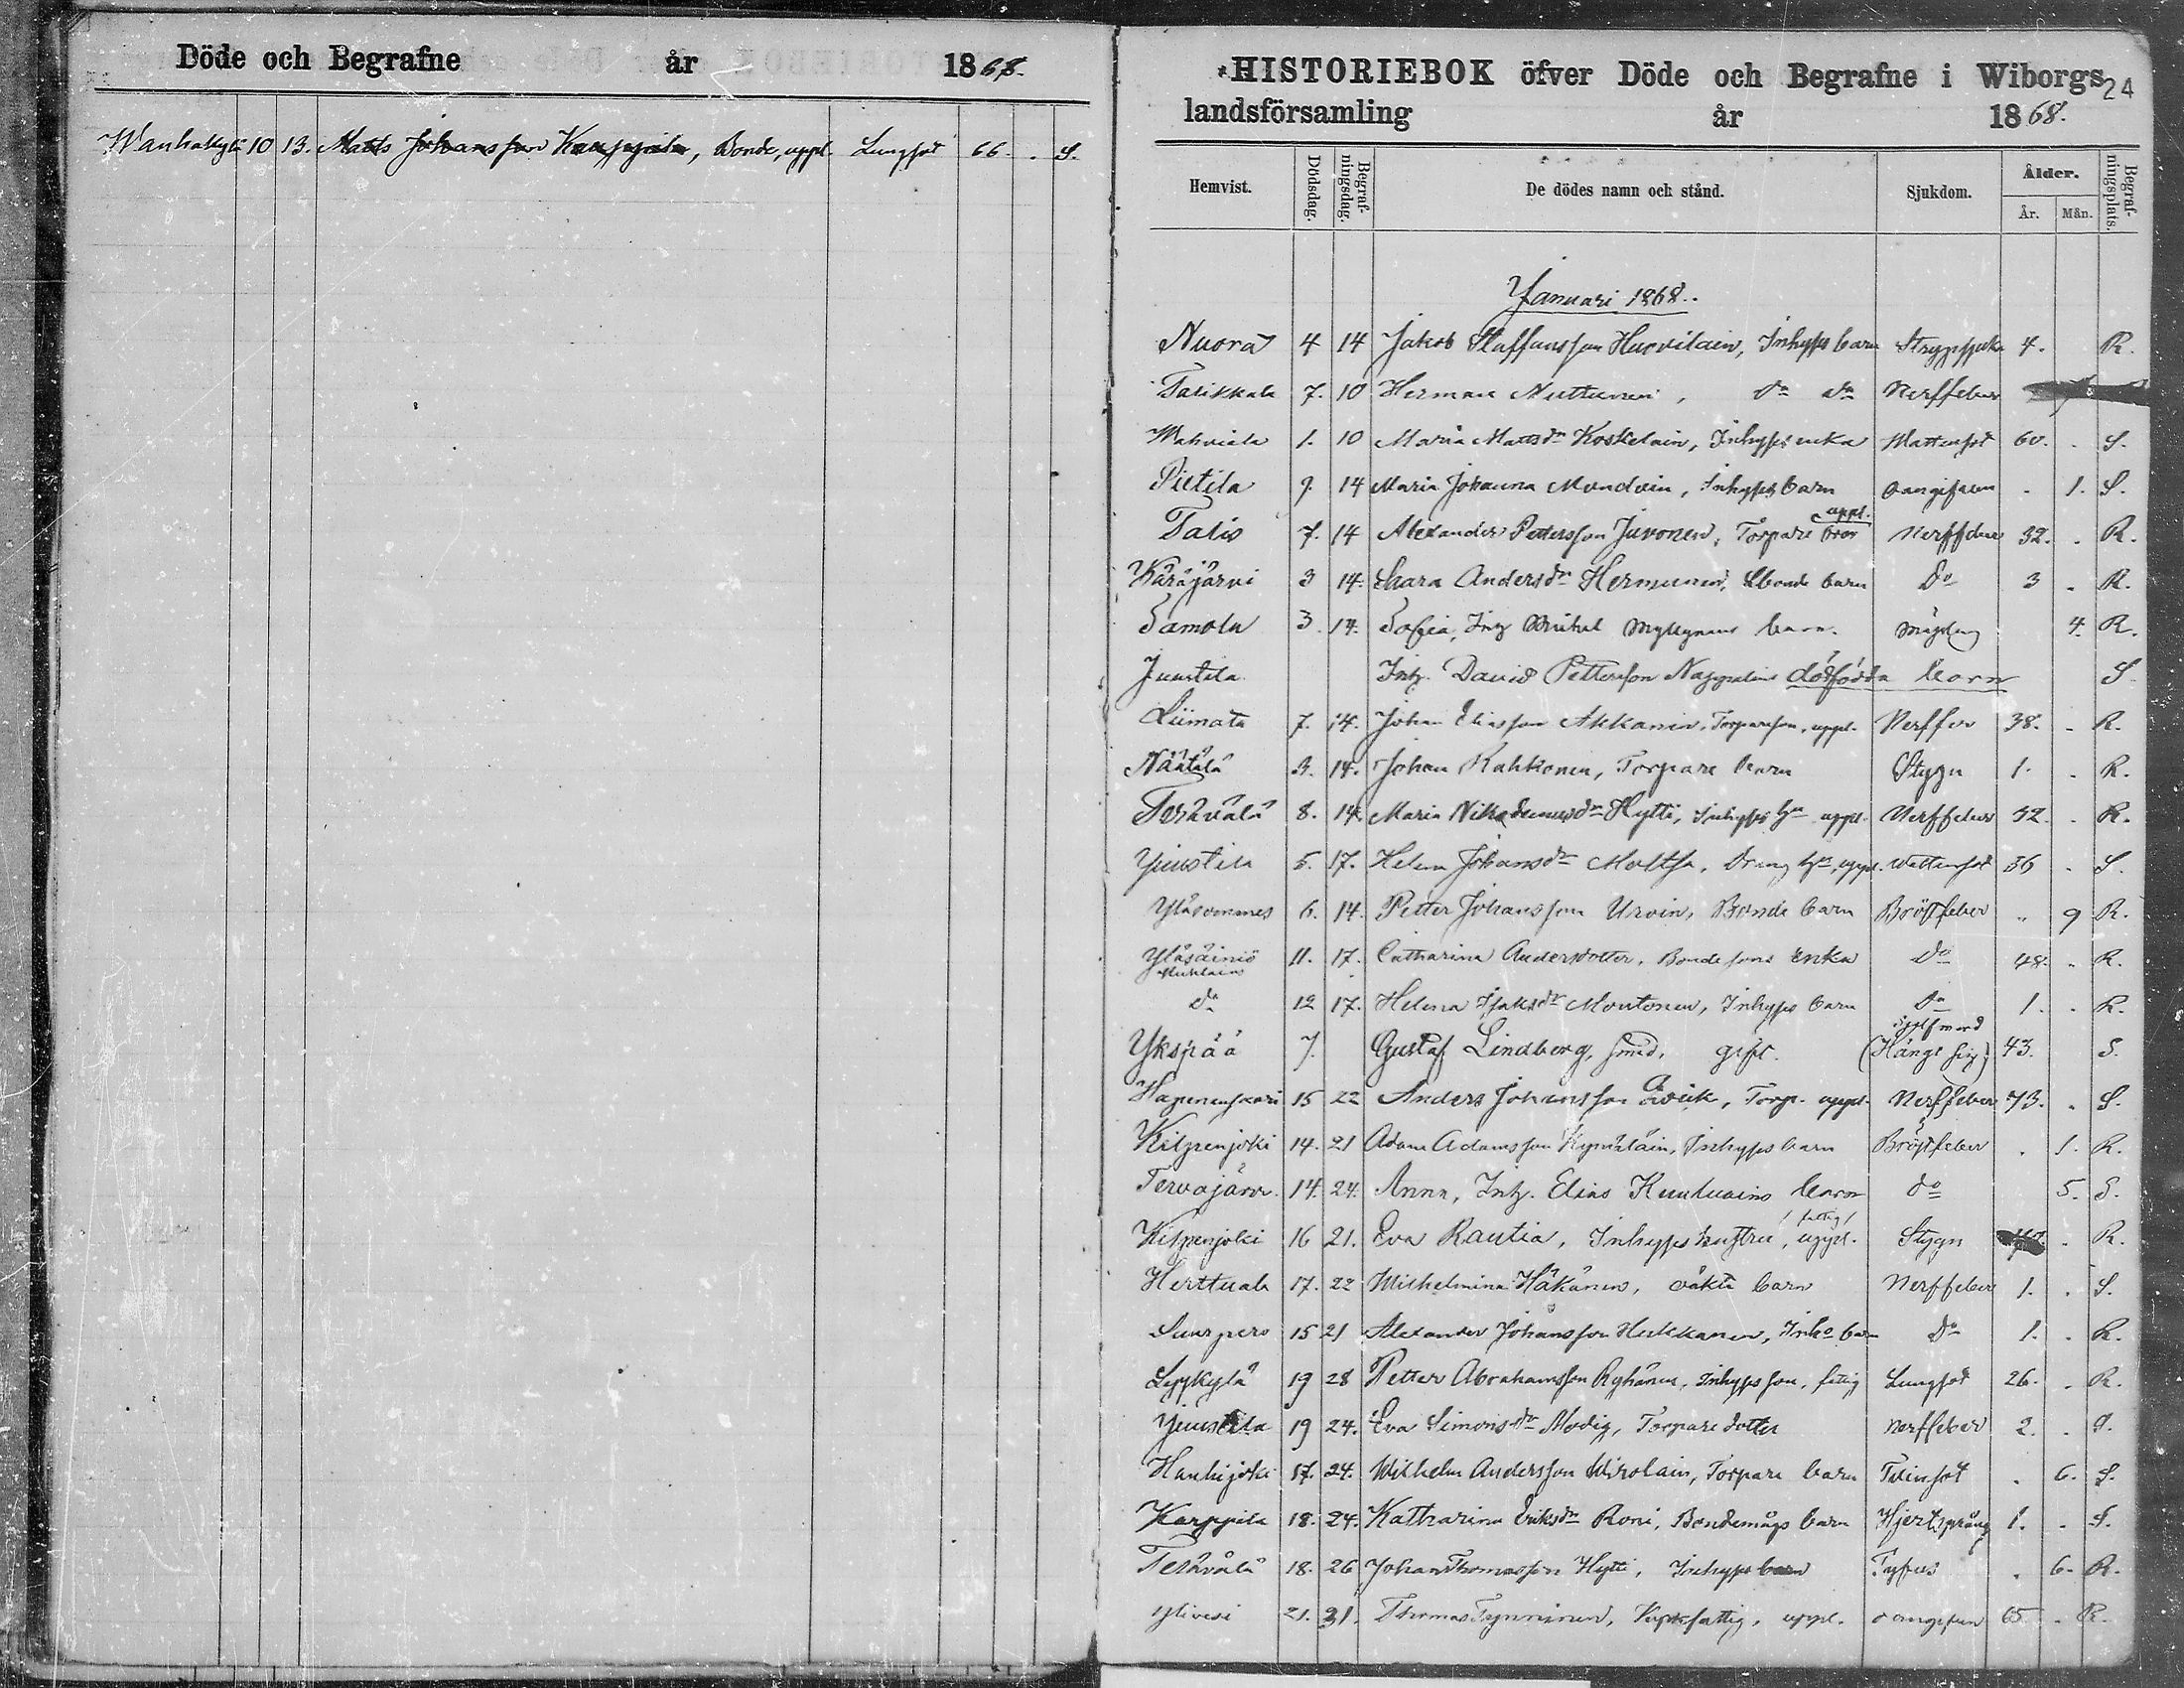 Döde och Begrafne år 1868.
Wanhakylä 10 13. Matts Johansson Karppila, Bonde, uppl. Lungsot 66 . S.
HISTORIEBOK öfver Döde och Begrafne i Wiborgs 24
landsförsamling år 1868.
Hemvist. Dödsdag. Begrafningsdag. De dödes namn och stånd. Sjukdom. Ålder. År. Mån. Begrafningsplats.
Januari 1868.
Nuora 4 14 Jakob Staffansson Hurvilain, Inhyses barn Strypsjuka 4. R.
Tarikkala 7. 10 Herman Nuttunen, do do Nerffeber
Wahviala 1. 10 Maria Mattsdr Koskelain, Inhyses enka Wattensot 60. . S.
Pietilä 9. 14 Maria Johanna Mundvin, Inhyses barn oangifven . 1. S.
Talis 7. 14 Alexander Pettersson Juvonen, Torpare bror uppl. Nerffeber 32. . R.
Käräjärvi 3 14. Sara Andersdr Hermunen, Lbonde barn Do 3 . R.
Samola 3. 14. Sofia, Inh Mikel Myllynens barn. 4. R.
Juustila Inh. David Pettersson dödfödda barn S.
Liimata 7. 14. Johan Eliasson Akkanen, Torpareson, uppl. Nerffeb 38. . R.
Näätälä 3. 14. Johan Kahkonen, Torpare barn Stygn 1. . R.
Terävälä 8. 14. Maria Nikodemusdr Hytti, Inhyses hu uppl. Nerffeber 32. . R.
Yjuustila 5. 17. Helena Johansdr Multsa, Dräng hu, uppl. Wattensot 36 . S.
Yläsommes 6. 14. Petter Johansson Urvin, Bonde barn Bröstfeber .. 9 R.
Yläsäiniö 11. 17. Catharina Andersdotter, Bondesons Enka Do 48. . R.
do 12 17. Helena Isaksdr Montonen, Inhyses barn do 1. . R.
Ykspää 7. Gustaf Lindberg, smed, gift. Sjelfmord (Hängt sig) 43. S.
Hapenensaari 15 22 Anders Johansson Torp. uppl. Nerffeber 73. . S.
Kilpenjoki 14. 21 Adam Adamsson Kymäläin, Inhyses barn Bröstfeber . 1. R.
Tervajärvi 14. 24. Anna, Inh. Elias Kuuluains barn do 5. S.
Kilpenjoki 16 21. Eva Rautia, Inhyses hustru, /fattig/ uppl. Stygn . R.
Herttuala 17. 22 Wilhelmina Häkänen, oäkta barn Nerffeber 1. . S.
Suurpero 15 21 Alexander Johansson Hukkanen, Inhs barn Do 1. . R.
Lyykylä 19 28 Petter Abrahamsson Ryhänen, Inhyses son, fatig Lungsot 26. . R.
Yjuustila 19 24. Eva Simonsdr Modig, Torpare dotter Nerffeber 2. . S.
Hanhijoki 17. 24. Wilhelm Andersson Wirolain, Torpare barn Trånsot . 6. S.
Karppila 18. 24. Katharina Eriksdr Roni, Bondemågs barn Hjertsprång 1. . S.
Terävälä 18. 26 Johan Thomasson Hytti, Inhyses barn Tyfus . 6. R.
Ylivesi 21. 31. Thomas Tynninen, Kyrkfattig, uppl. oangifven 65 . R.